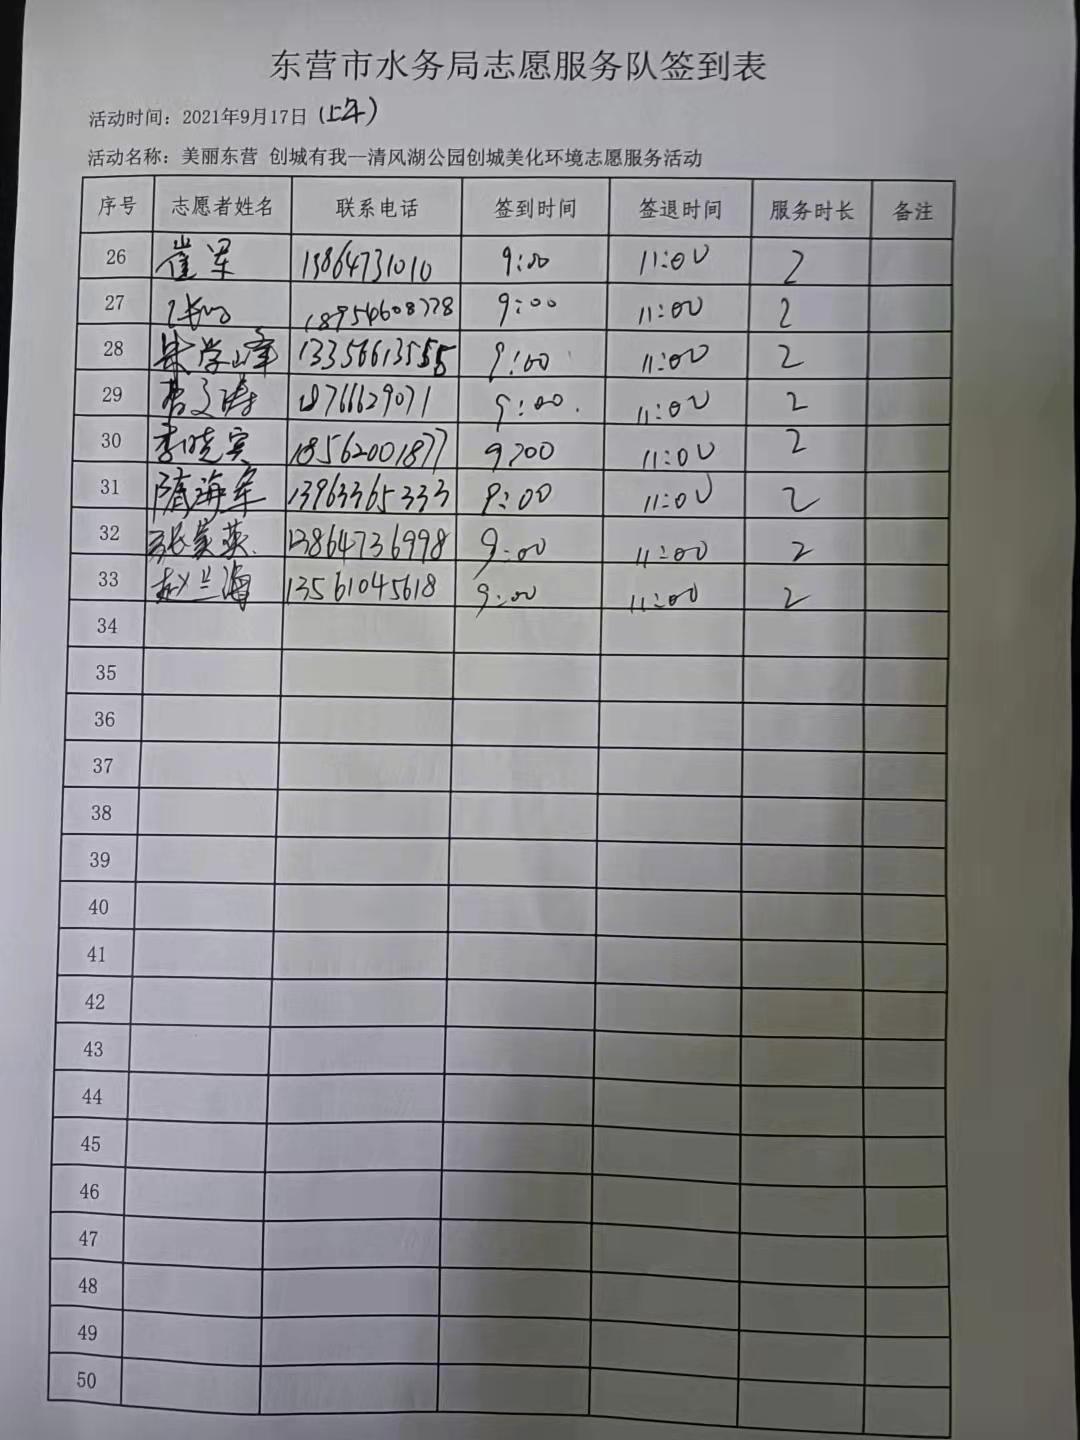 东营市水务局志愿服务队签到表
活动时间：2021年9月17日（上午）
活动名称：美丽东营 创城有我--清风湖公园创城美化环境志愿服务活动
序号 志愿者姓名 联系电话 签到时间 签退时间 服务时长 备注
26 崔军 13864731010 9:00 11:00 2
27 18954608778 9:00 11:00 2
28 宋学峰 13356613555 9:00 11:00 2
29 18766629071 9:00 11:00 2
30 李晓宾 18562001877 9:00 11:00 2
31 隋海军 13963365333 9:00 11:00 2
32 张美英 13864736998 9:00 11:00 2
33 赵兰海 13561045618 9:00 11:00 2
34
35
36
37
38
39
40
41
42
43
44
45
46
47
48
49
50